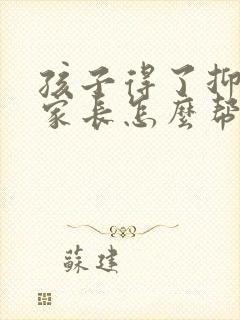 孩子得了抑
家長怎麼幫
蘇建